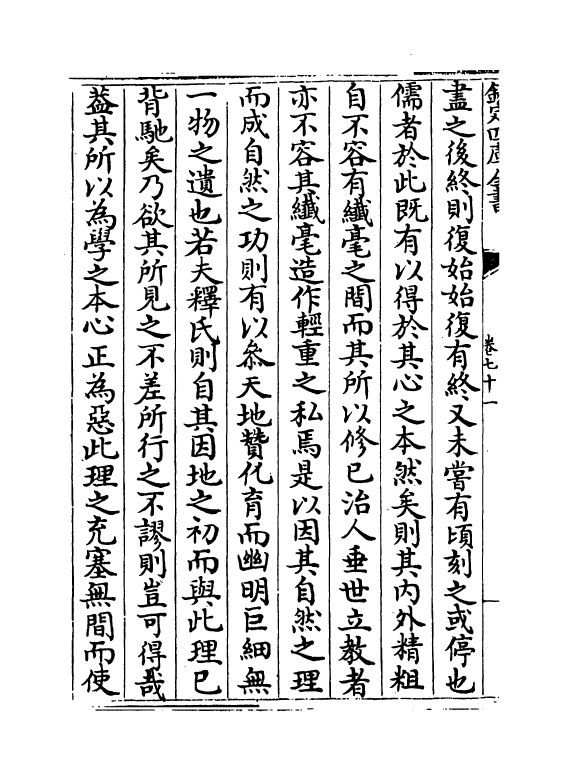 欽定四庫全書
卷七十一
盡之後終則復始始復有終又未嘗有頃刻之或停也
儒者於此既有以得於其心之本然矣則其内外精粗
自不容有纎毫之間而其所以修已治人垂世立教者
亦不容其纎毫造作輕重之私焉是以因其自然之理
而成自然之功則有以叅天地贊化育而幽明巨細無
一物之遺也若夫釋氏則自其因地之初而與此理已
背馳矣乃欲其所見之不差所行之不謬則豈可得哉
葢其所以為學之本心正為惡此理之充塞無間而使